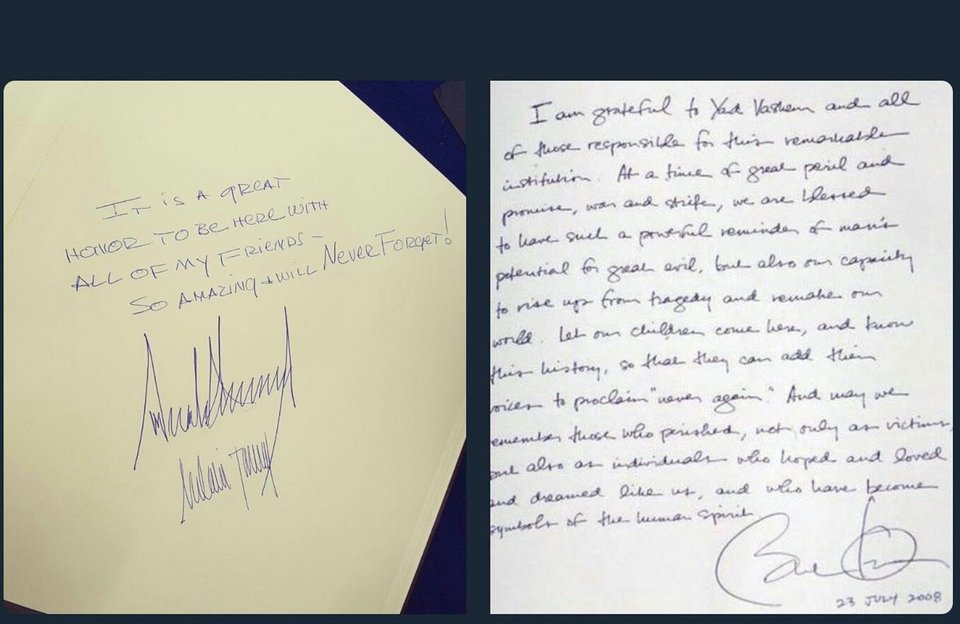 IT IS A GREAT
HONOR TO BE HERE WITH
ALL OF MY FRIENDS -
SO AMAZING + WILL NEVER FORGET!
I am grateful to Yad Vashem and all
of those responsible for this remarkable
institution. At a time of great peril and
promise, war and strife, we are blessed
to have such a powerful reminder of man's
potential for great evil, but also our capacity
to rise up from tragedy and remake our
world. Let our children come here, and know
this history, so that they can add their
voices to proclaim "never again." And may we
remember those who perished, not only as victims,
but also as individuals who hoped and loved
and dreamed like us, and who have become
symbols of the human spirit.
23 JULY 2008